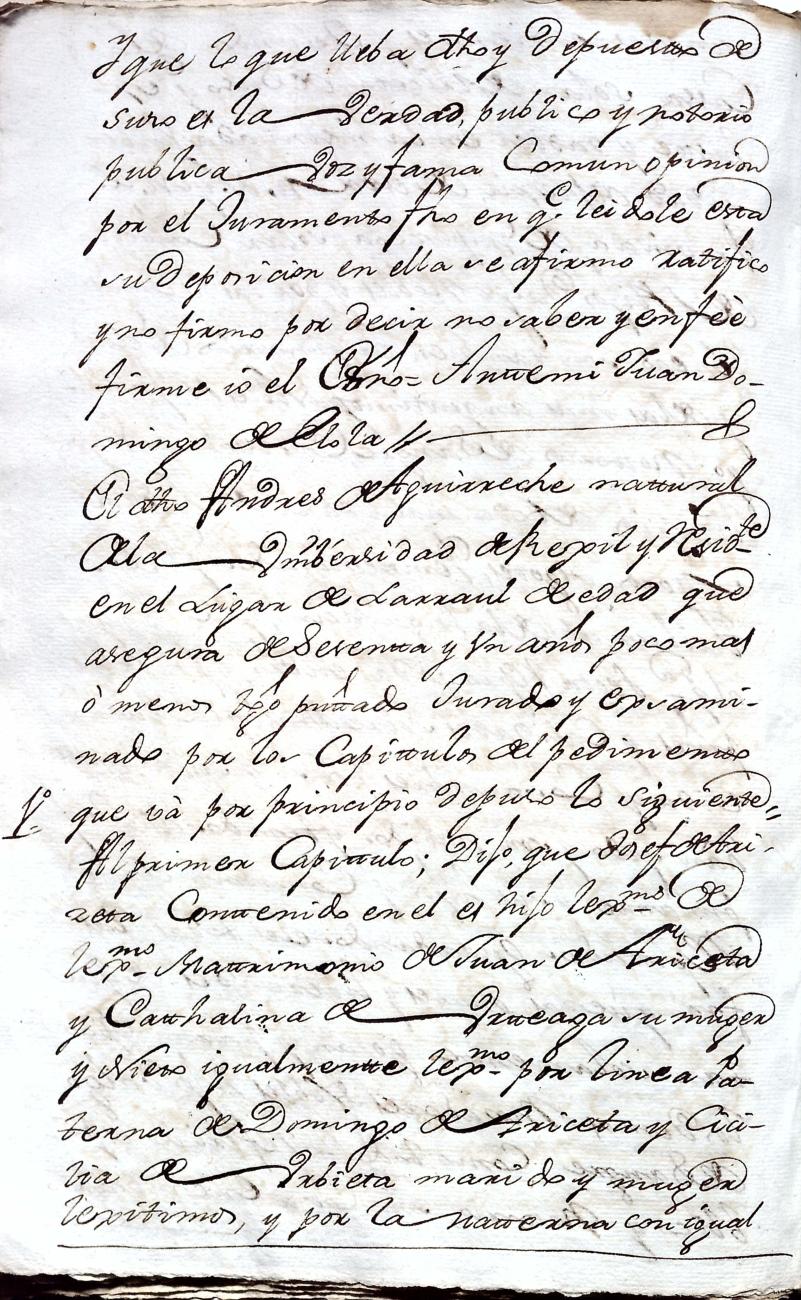 Y que lo que lleba dho y depuesto de
suso es la Verdad, publico y notorio
publica Voz y fama Comun opinion
por el Juramento fho en q.e leidole esta
su Deposicion en ella se afirmo ratifico
y no firmo por decir no saber y en feè
firme io el Essno= Antte mi Juan Do-
mingo de Elola //
El dho Andres de Aguirreche nattural
de la Vnibersidad de Rexil y Resid.te
en el Lugar de Larraul de edad que
asegura de Sesentta y Vn años poco mas
ò menos tgo preᵗtado Jurado y exsami-
nado por los Capittulos del pedimento
que và por principio depuso lo siguiente=
1º
Al primer Capittulo; Dijo, que Josef de Ari-
zeta Conttenido en el es hijo lex.mo de
lex.mo Mattrimonio de Juan de Ariceta
y Catthalina de Vrtteaga su muger
y Nieto igualmentte lex.mo por linea Pa-
terna de Domingo de Ariceta y Cici-
lia de Vrbieta marido y muger
lexitimos, y por la matterna con igual